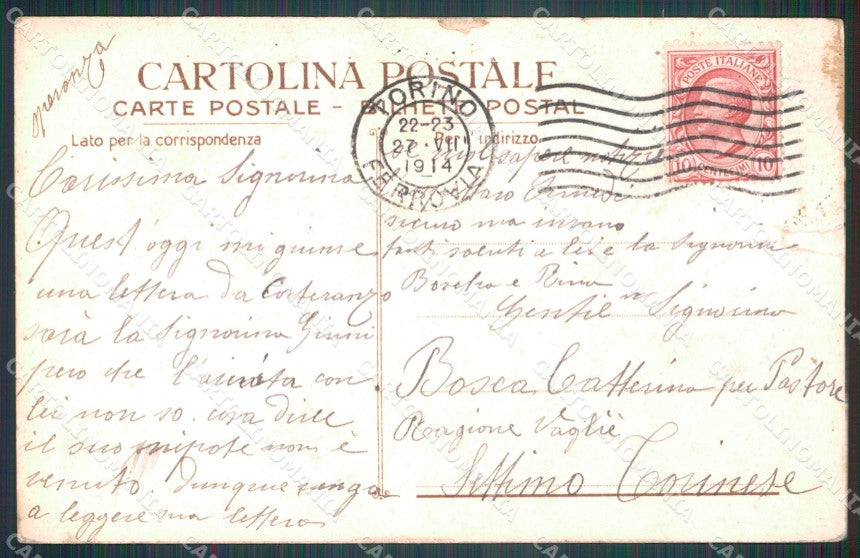 speranza
CARTOLINA POSTALE
CARTE POSTALE - POSTAL
Lato per la corrispondenza
indirizzo
TORINO
22-23
27 · VII
1914
FERROVIA
POSTE ITALIANE
10 CENTESIMI 10
Carissima Signorina
Quest oggi mi giunse
una lettera da Costeranzo
sarà la Signorina
pero che con
lei non so cosa dirle
il suo nipote non è
venuto Dunque venga
a leggere ma lettera
sapere notizie
sicuro ma invano
tanti saluti a lei e la Signorina
e Rina
Gentil Signorina
Bosca Catterina per Pastore
Ragione Vagliè
Settimo Torinese
CARTOLINOMANIA